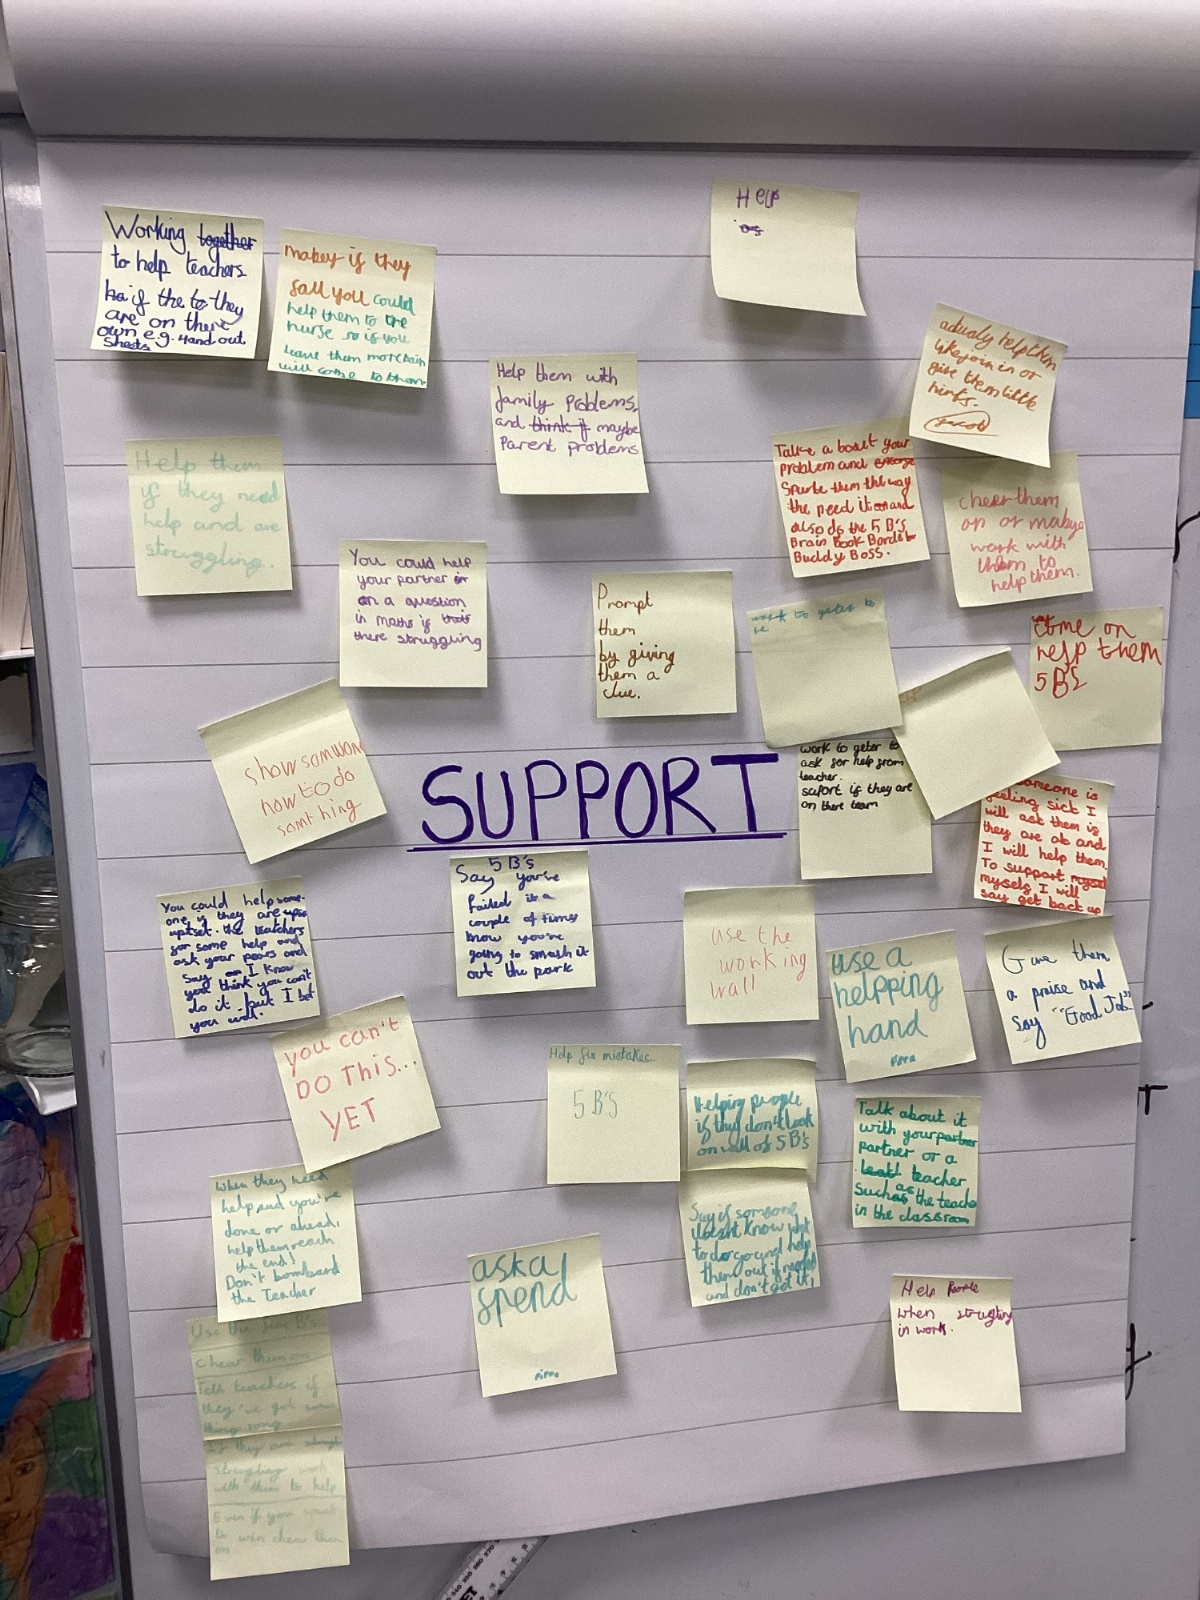 Help
Working together
to help teachers
if the to they
are on there
own e.g. Hand out
sheets
mabey if they
fall you could
help them to the
nurse so if you
leave them more pain
will come to them
actualy help them
like join in or
give them little
hints.
Help them with
family Problems,
and think if maybe
Parent problems
Talke a bout your
problem and
them the way
the need it and
also do the 5 B's
Brain Book Border
Buddy Boss.
Help them
if they need
help and are
struggling.
cheer them
on or mabye
work with
them to
help them.
You could help
your partner
on a question
in maths if that
there struggling
Prompt
them
by giving
them a
clue.
work to geter to
come on
help them
5 B's
show somwon
how to do
somthing
SUPPORT
work to geter to
ask for help from
teacher.
suport if they are
on there team
someone is
feeling sick I
will ask them if
they are ok and
I will help them.
To support myself
myself I will
say get back up
You could help some-
one if they are
uptset. the teatchers
for some help and
ask your pears and
say I know
you think you can't
do it but I bet
you will.
5 B's
Say you've
failed it a
couple of times
know you're
going to smash it
out the park
use the
working
wall
use a
helpping
hand
Give them
a praise and
say "Good Job"
you can't
DO THIS...
YET
Help fix mistakes
5 B'S
Helping people
if they don't look
on wall of 5 B's
Talk about it
with your partner
partner or a
teacher
such as the teache
in the classroom
when they need
help and you've
done or ahead,
help them reach
the end!
Don't bombard
the Teacher
Say if someone
doesnt know what
to do go and help
them out if needed
and don't get it!
ask a
frend
Help People
when struggling
in work.
Use the five B's
chear them on
Tell teachers if
they've got some
thing rong
If they are
struggling work
with them to help
Even if you want
to win chear them
on